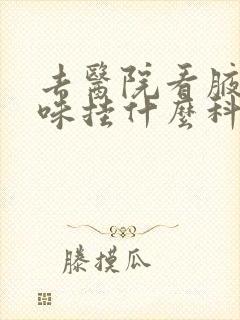 去醫院看腋
味挂什麼科
滕摸瓜